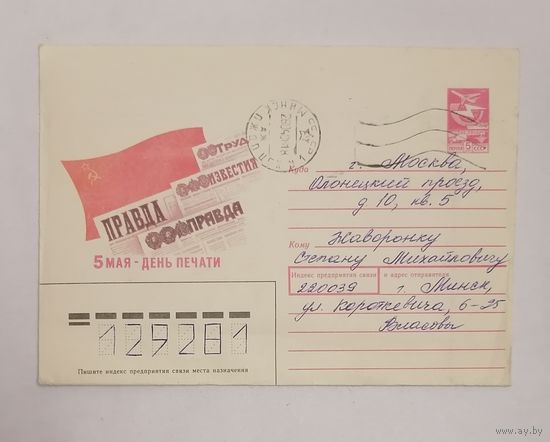 ТРУД
ИЗВЕСТИЯ
ПРАВДА
ПРАВДА
5 МАЯ - ДЕНЬ ПЕЧАТИ
ПОЧТА 5 СССР
МИНСК
Куда г. Москва,
Олонецкий проезд,
д 10, кв. 5
Кому Жаворонку
Степану Михайловичу
Индекс предприятия связи и адрес отправителя
220039 г. Минск,
ул. Короткевича, 6-25
Власовы
129281
Пишите индекс предприятия связи места назначения
www.ay.by